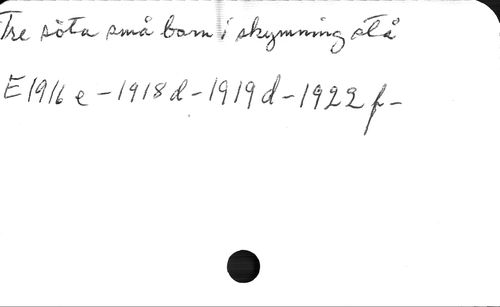 Tre söta små barn i skymning stå
E 1916 e - 1918 d - 1919 d - 1922 f -